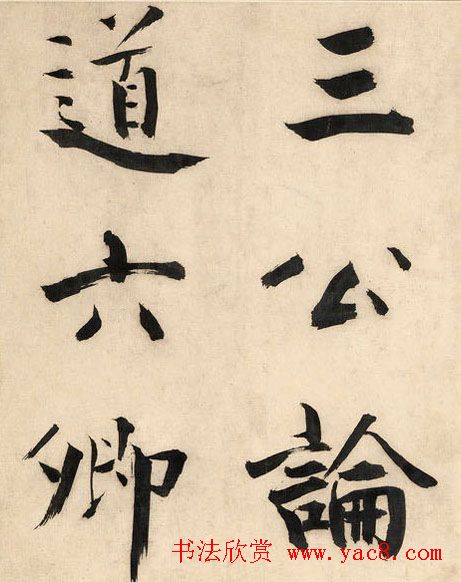 三公論
道六卿
书法欣赏 www.yac8.com